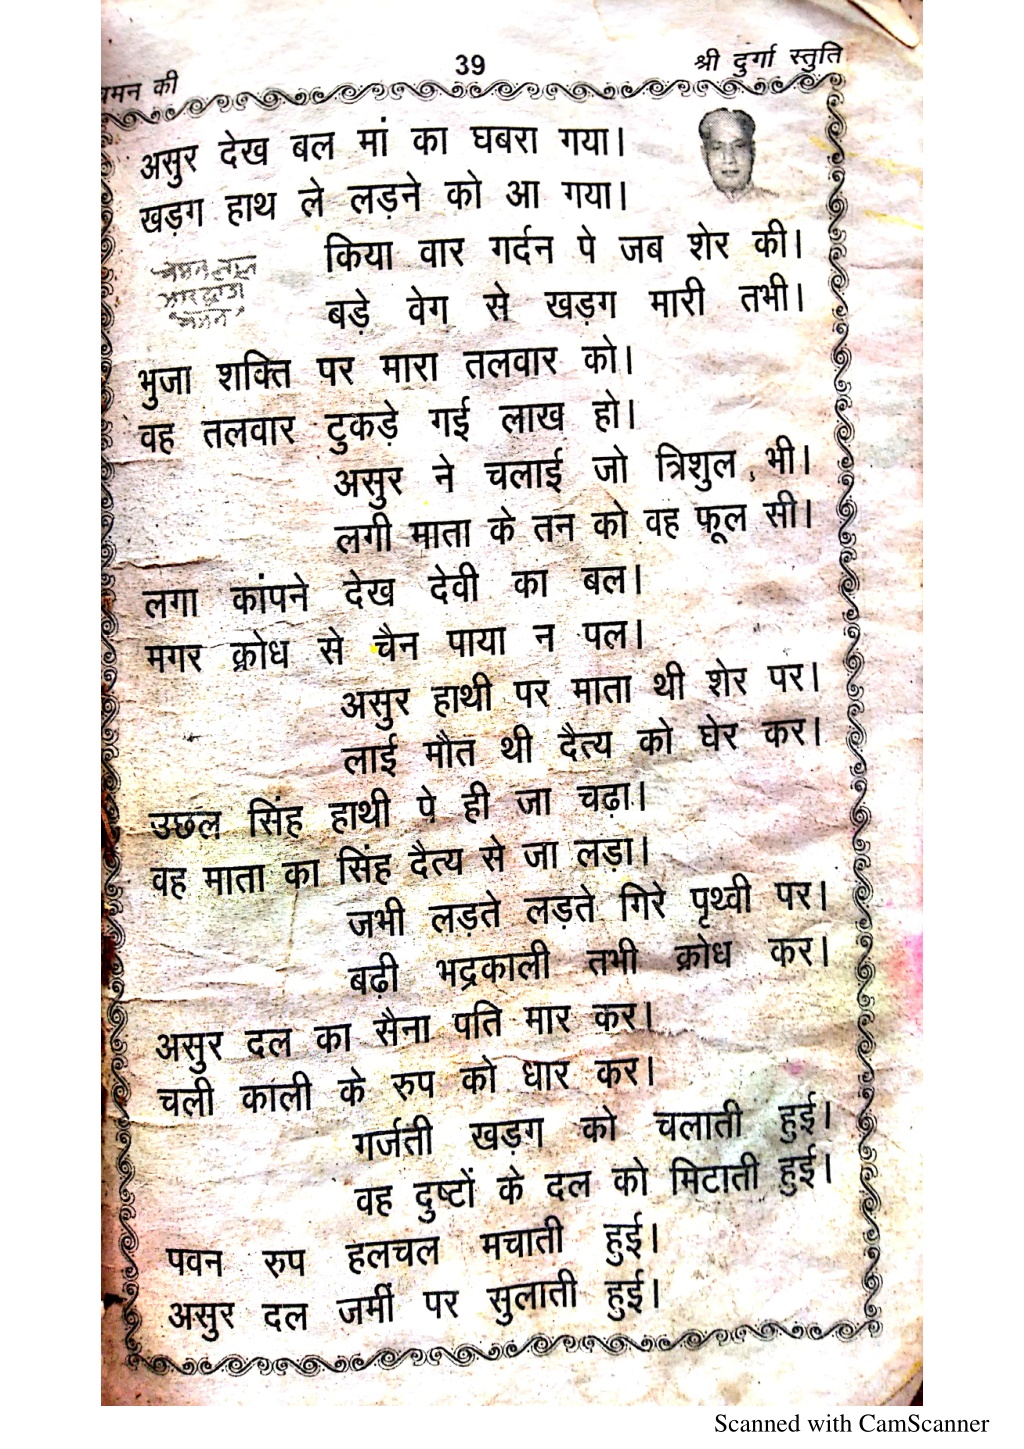 चमन की
39
श्री दुर्गा स्तुति
असुर देख बल मां का घबरा गया।
खड़ग हाथ ले लड़ने को आ गया।
किया वार गर्दन पे जब शेर की।
बड़े वेग से खड़ग मारी तभी।
चमन लाल
भारद्वाज
"चमन"
भुजा शक्ति पर मारा तलवार को।
वह तलवार टुकड़े गई लाख हो।
असुर ने चलाई जो त्रिशुल भी।
लगी माता के तन को वह फूल सी।
लगा कांपने देख देवी का बल।
मगर क्रोध से चैन पाया न पल।
असुर हाथी पर माता थी शेर पर।
लाई मौत थी दैत्य को घेर कर।
उछल सिंह हाथी पे ही जा चढ़ा।
वह माता का सिंह दैत्य से जा लड़ा।
जभी लड़ते लड़ते गिरे पृथ्वी पर।
बढ़ी भद्रकाली तभी क्रोध कर।
असुर दल का सैना पति मार कर।
चली काली के रुप को धार कर।
गर्जती खड़ग को चलाती हुई।
वह दुष्टों के दल को मिटाती हुई।
पवन रुप हलचल मचाती हुई।
असुर दल जमीं पर सुलाती हुई।
Scanned with CamScanner